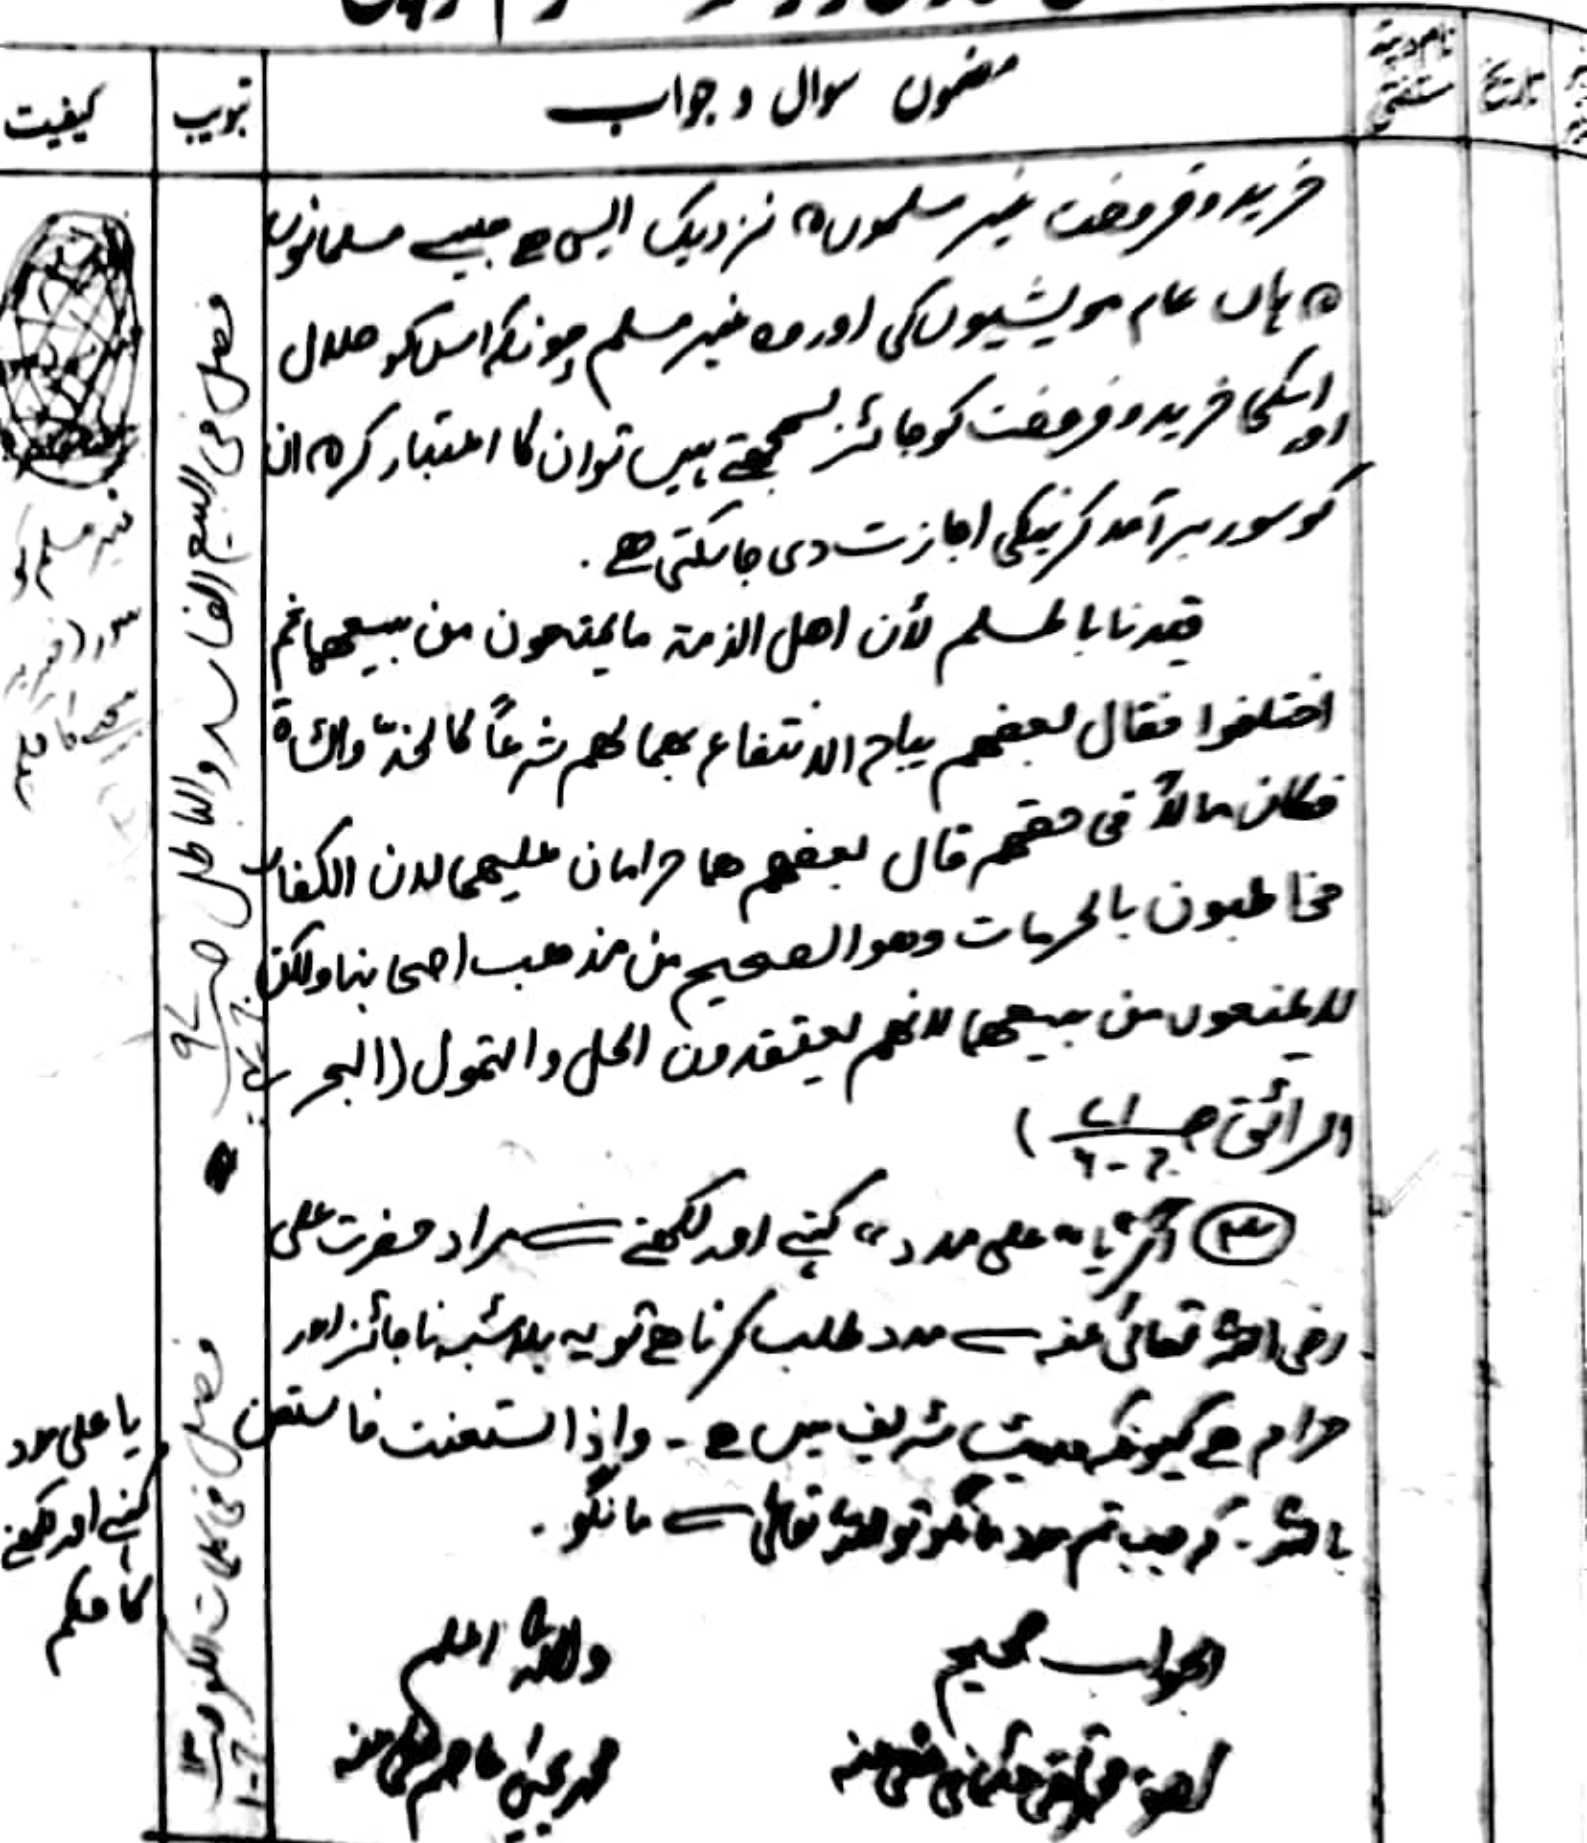 نام و پتہ مستفتی
تاریخ
مضمون سوال و جواب
تبویب
کیفیت
خرید و فروخت غیر مسلموں کے نزدیک ایسی ہے جیسے مسلمانوں
کے ہاں عام مویشیوں کی اور وہ غیر مسلم چونکہ اس کو حلال
اور اسکی خرید و فروخت کو جائز سمجھتے ہیں تو ان کا اعتبار کر کے ان
کو سور برآمد کرنیکی اجازت دی جا سکتی ہے .
قیدنا بالمسلم لأن اهل الذمۃ ما یمنعون من بیعھما ثم
اختلفوا فقال بعضھم یباح الانتفاع بھما لھم شرعاً کالخل والشاۃ
فکان مالاً فی حقھم قال بعضھم ھما حرامان علیھما لان الکفار
مخاطبون بالحرمات وھو الصحیح من مذھب اصحابنا ولکن
لا یمنعون من بیعھما لانھم یعتقدون الحل والتمول (البحر
الرائق صـ ۷۱ ج - ۶ )
۳ اگر "یا علی مدد" کہنے اور لکھنے سے مراد حضرت علی
رضی اللہ تعالیٰ عنہ سے مدد طلب کرنا ہے تو یہ بلاشبہ ناجائز اور
حرام ہے کیونکہ حدیث شریف میں ہے - واذا استعنت فاستعن
باللہ - کہ جب تم مدد مانگو تو اللہ تعالیٰ سے مانگو .
الجواب صحیح
واللہ اعلم
احقر محمد تقی عثمانی عفی عنہ
محمد یحییٰ عاصم عفی عنہ
فصل فی البیع الفاسد والباطل
فصل فی کلمات الکفر
غیر مسلم کو
یا علی مدد
کہنے اور لکھنے
کا حکم